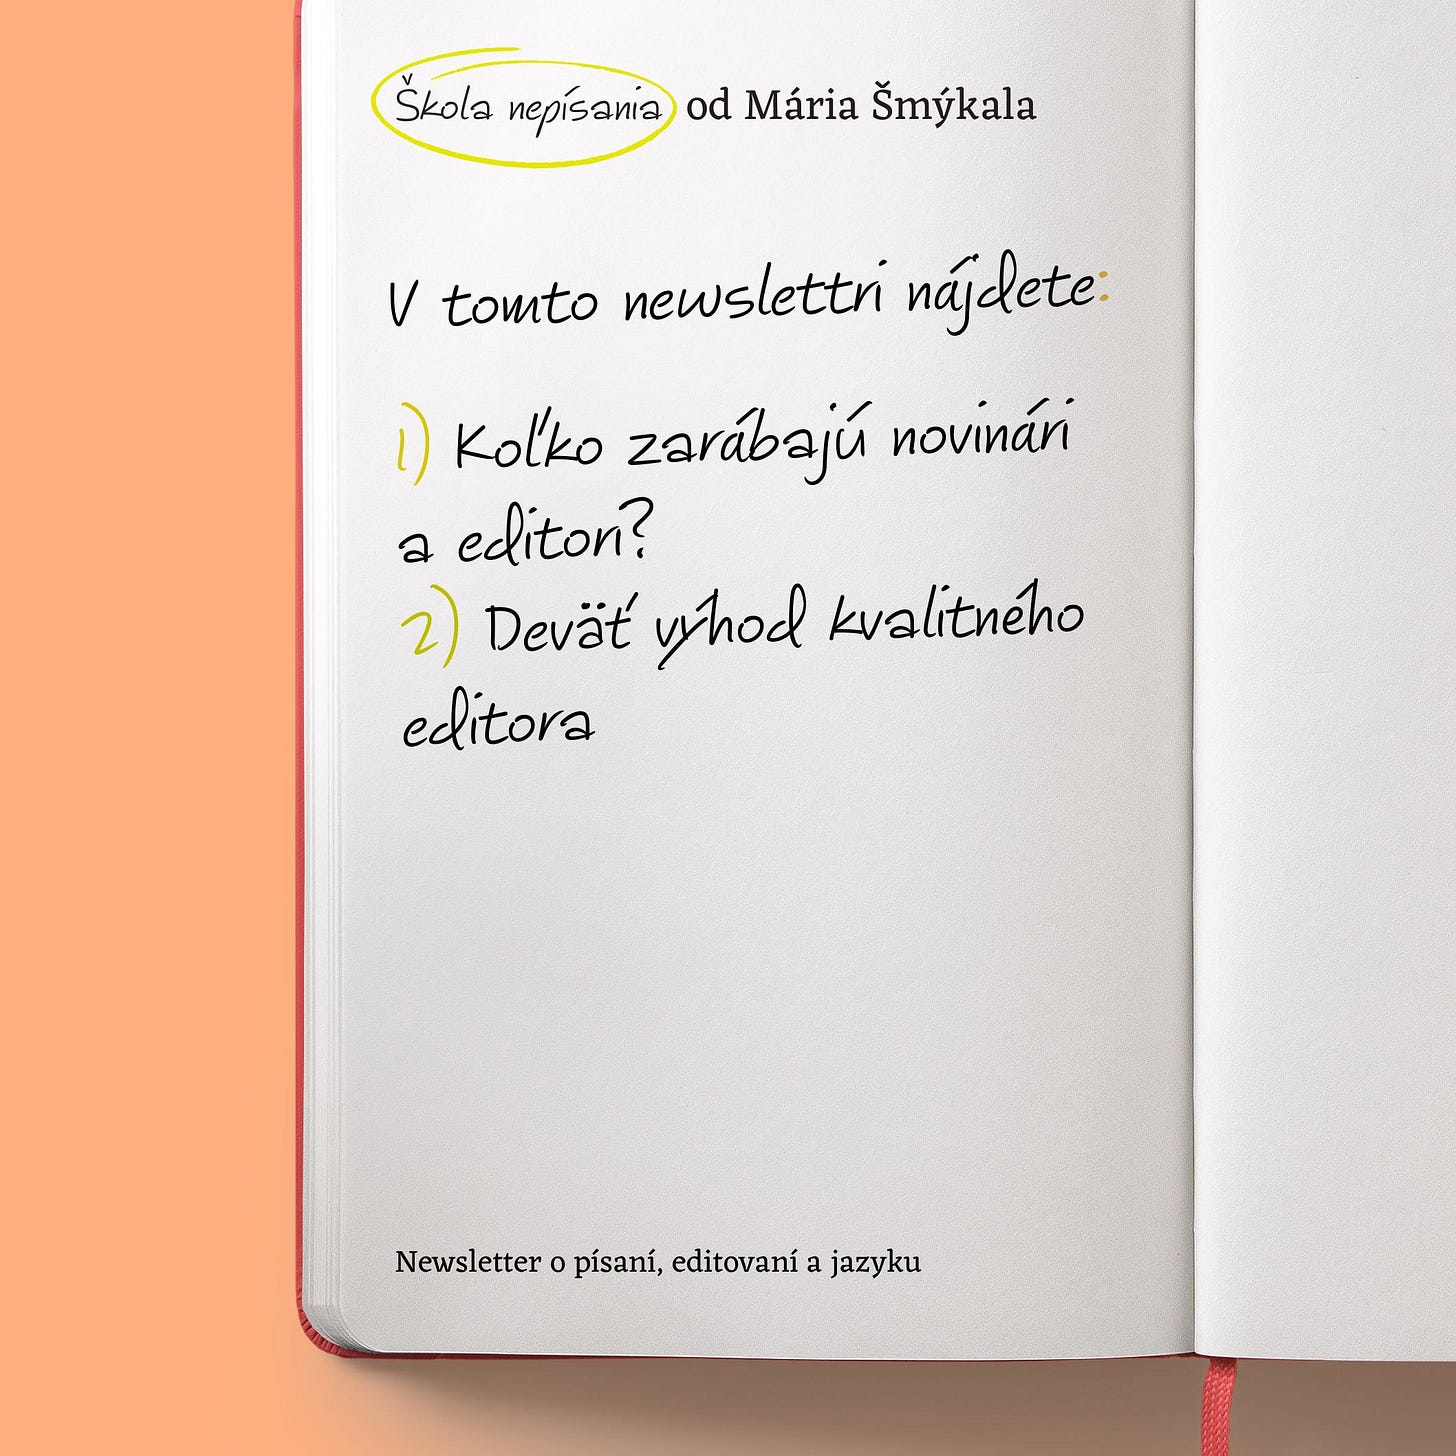 Škola nepísania od Mária Šmýkala
V tomto newslettri nájdete:
1) Koľko zarábajú novinári
a editori?
2) Deväť výhod kvalitného
editora
Newsletter o písaní, editovaní a jazyku